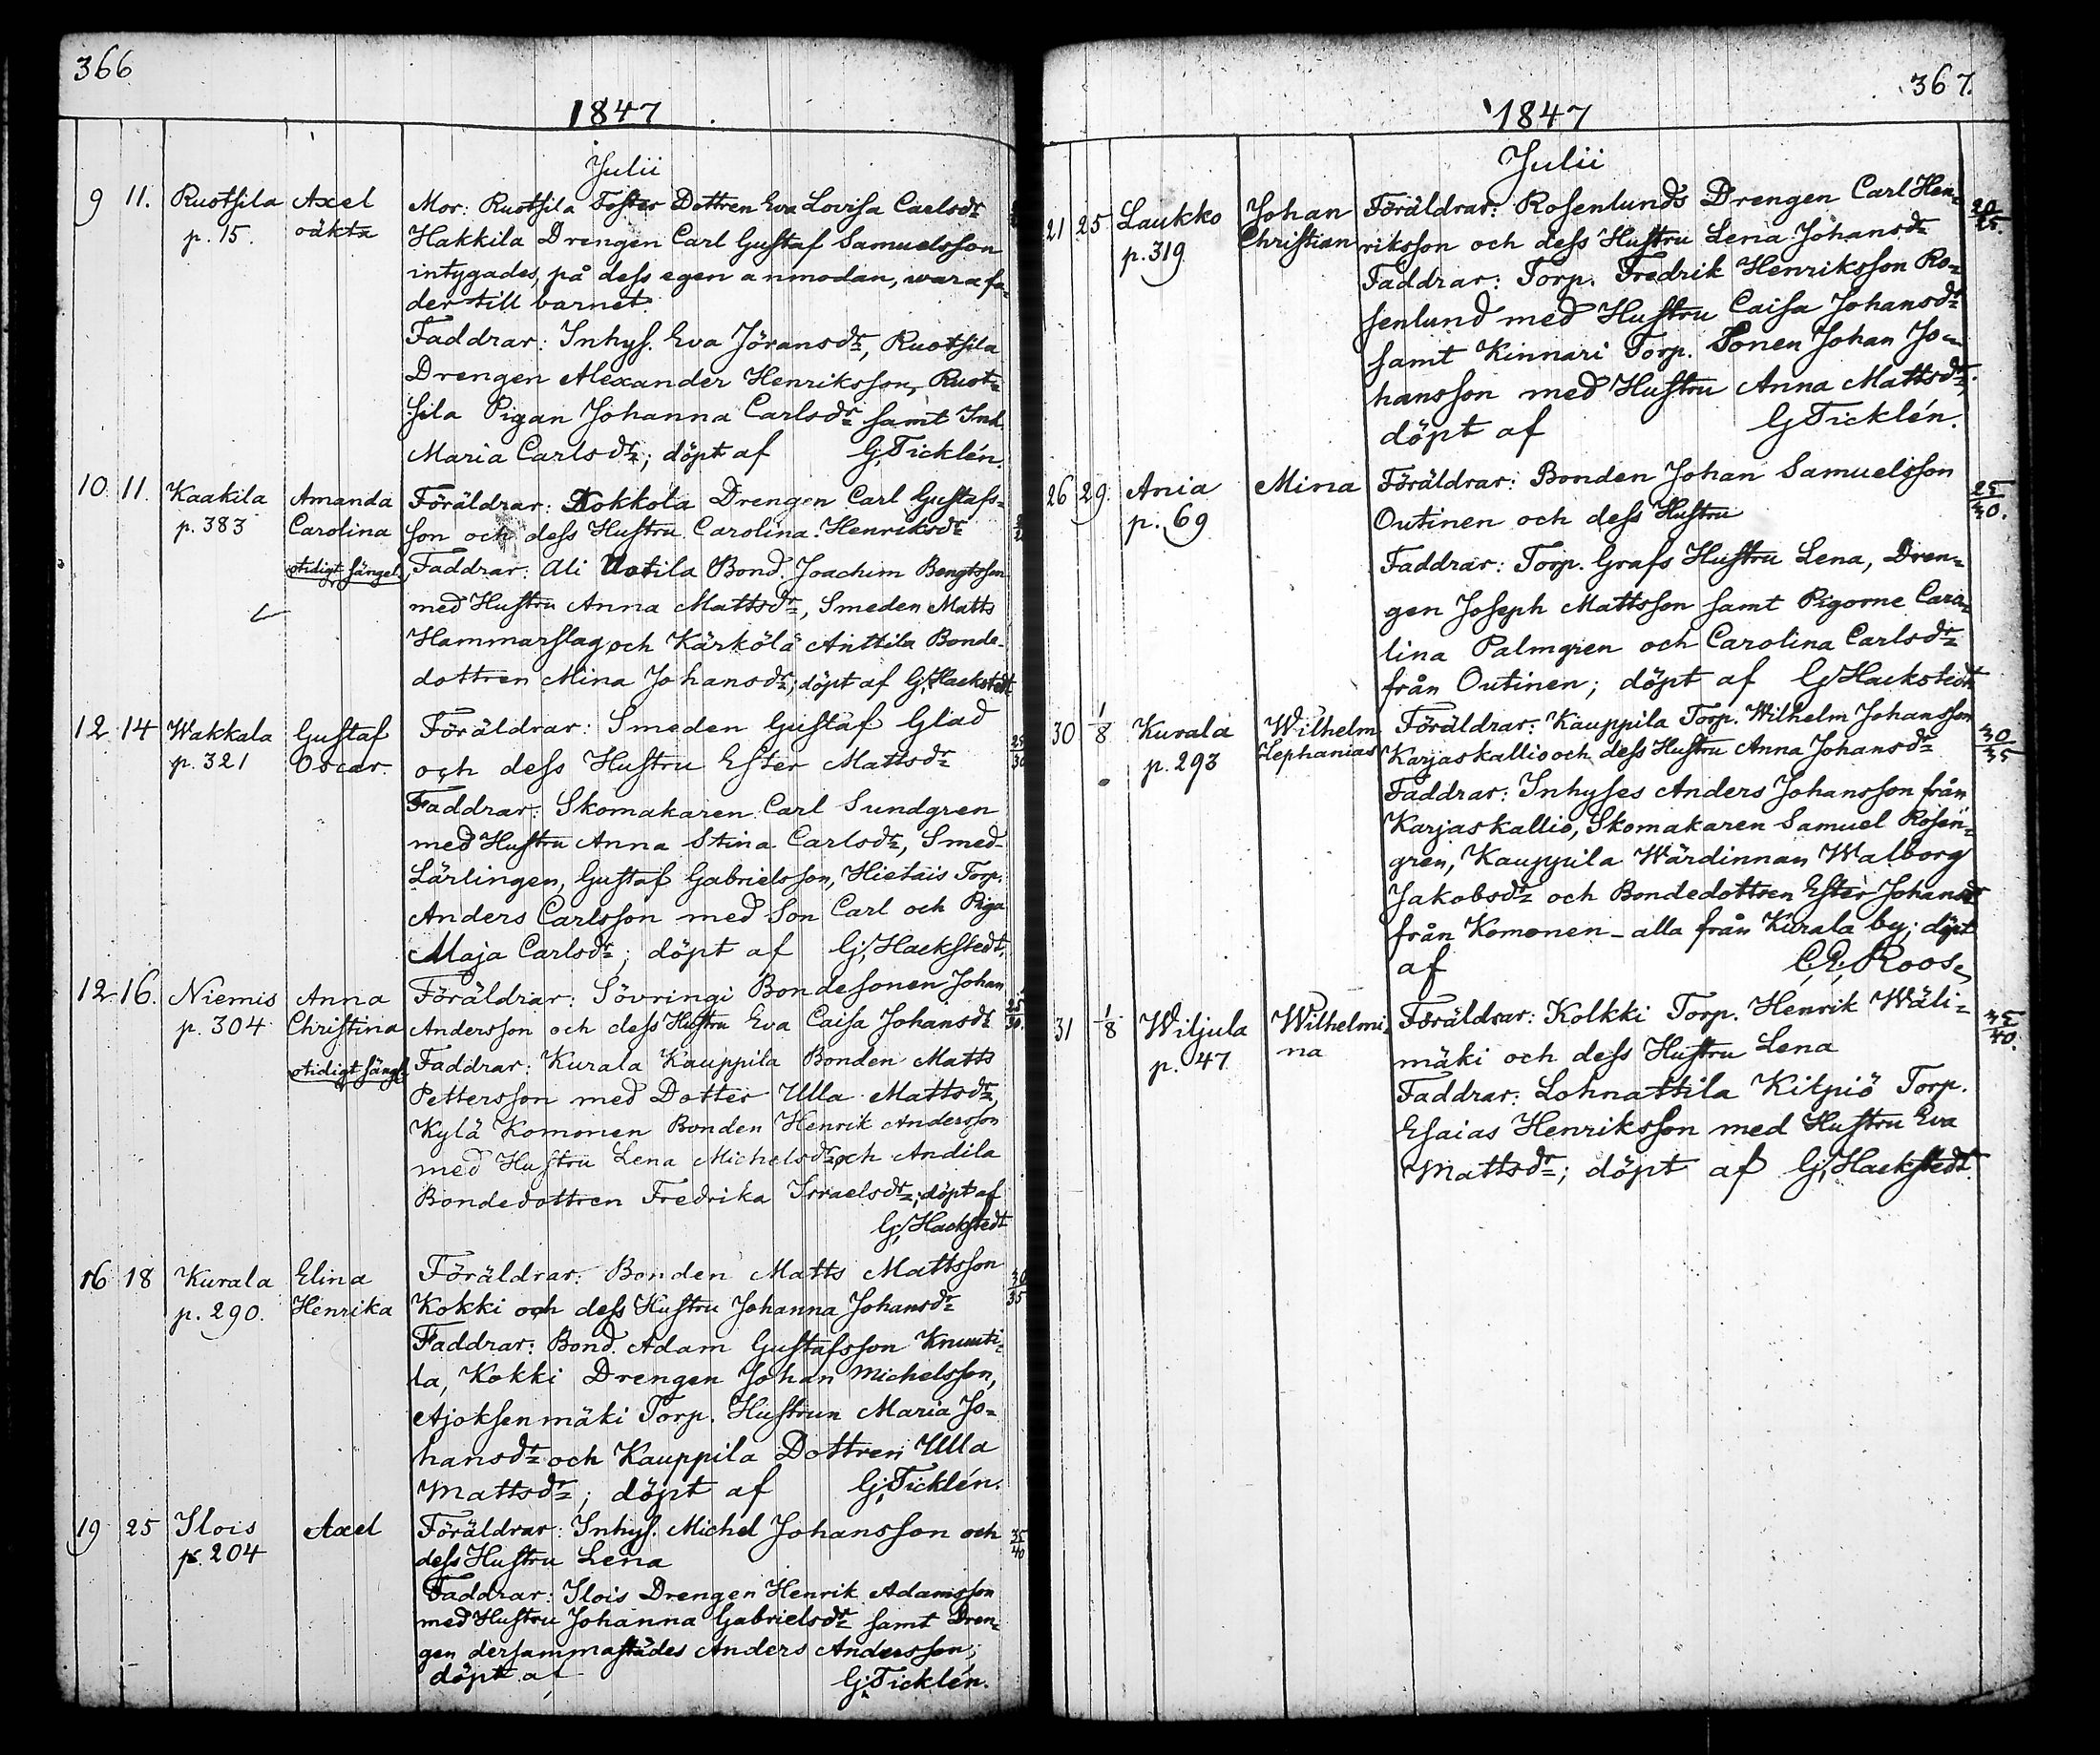 366
1847
Julii
9 11. Ruotsila Axel Mor: Ruotsila Foster Dottren Eva Lovisa Caelsdr
p. 15. oäkta Hakkila Drengen Carl Gustaf Samuelsson
intygades, på dess egen anmodan, wara fa-
der till barnet.
Faddrar: Inhys. Eva Jöransdr, Ruotsila
Drengen Alexander Henriksson, Ruot-
sila Pigan Johanna Carlsdr samt Inh.
Maria Carlsdr; döpt af G, Ticklén.
10 11. Kaakila Amanda Föräldrar: Nokkola Drengen Carl Gustafs-
p. 383 Carolina son och dess Hustru Carolina Henriksdr
otidigt sängel. Faddrar: Ali Uotila Bond. Joachim Bengtsson
med Hustru Anna Mattsdr, Smeden Matts
Hammarslag och Kärkölä Anttila Bonde-
dottren Mina Johansdr; döpt af G, Hackstedt
12 14 Wakkala Gustaf Föräldrar: Smeden Gustaf Glad 25
p. 321 Oscar. och dess Hustru Ester Mattsdr 30
Faddrar: Skomakaren Carl Sundgren
med Hustru Anna Stina Carlsdr, Smed-
Lärlingen, Gustaf Gabrielsson, Hietais Torp.
Anders Carlsson med Son Carl och Piga
Maja Carlsdr; döpt af G, Hackstedt,
12 16. Niemis Anna Föräldrar: Sövringi Bondesonen Johan 25
p. 304 Christina Andersson och dess Hustru Eva Caisa Johansdr 30.
otidigt sängel. Faddrar: Kurala Kauppila Bonden Matts
Pettersson med Dotter Ulla Mattsdr,
Kylä Komonen Bonden Henrik Andersson
med Hustru Lena Michelsdr och Andila
Bondedottren Fredrika Israelsdr; döpt af
G, Hackstedt
16 18 Kurala Elina Föräldrar: Bonden Matts Mattsson 30
p. 290. Henrika Kokki och dess Hustru Johanna Johansdr 35
Faddrar: Bond. Adam Gustafsson Knuuti-
la, Kokki Drengen Johan Michelsson,
Ajoksenmäki Torp. Hustrun Maria Jo-
hansdr och Kauppila Dottren Ulla
Mattsdr; döpt af G, Ticklén.
19 25 Ilois Axel Föräldrar: Inhys. Michel Johansson och 35
p. 204 dess Hustru Lena 40
Faddrar: Ilois Drengen Henrik Adamsson
med Hustru Johanna Gabrielsdr samt Dren-
gen dersammastädes Anders Andersson;
döpt af G, Ticklén.
367.
1847
Julii
21 25 Laukko Johan Föräldrar: Rosenlunds Drengen Carl Hen- 20
p. 319 Christian riksson och dess Hustru Lena Johansdr 25.
Faddrar: Torp. Fredrik Henriksson Ro-
senlund med Hustru Caisa Johansdr
samt Kinnari Torp. Sonen Johan Jo-
hansson med Hustru Anna Mattsdr;
döpt af G Ticklén.
26 29. Ania Mina Föräldrar: Bonden Johan Samuelsson 25
p. 69 Outinen och dess Hustru 30.
Faddrar: Torp. Grafs Hustru Lena, Dren-
gen Joseph Mattsson samt Pigorne Caro-
lina Palmgren och Carolina Carlsdr
från Outinen; döpt af G Hackstedt
30 1/8 Kurala Wilhelm Föräldrar: Kauppila Torp. Wilhelm Johansson 30
p. 293 Stephanias Karjaskallio och dess Hustru Anna Johansdr 35
Faddrar: Inhyses Anders Johansson från
Karjaskallio, Skomakaren Samuel Rosen-
gren, Kauppila Wärdinnan Walborg
Jakobsdr och Bondedottren Ester Johansdr
från Komonen - alla från Kurala by; döpt
af C, E, Roos,
31 1/8 Wiljula Wilhelmi- Föräldrar: Kolkki Torp. Henrik Wäli- 35
p. 47 na mäki och dess Hustru Lena 40.
Faddrar: Lohnattila Kilpiö Torp.
Esaias Henriksson med Hustru Eva
Mattsdr; döpt af G, Hackstedt